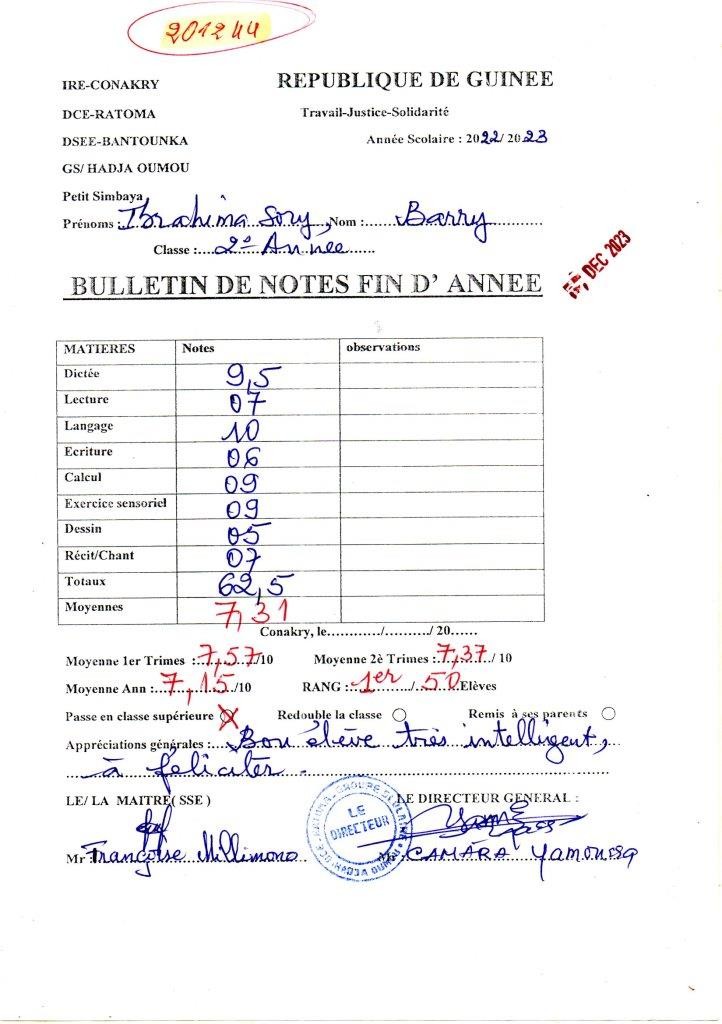 201244
IRE-CONAKRY
REPUBLIQUE DE GUINEE
DCE-RATOMA
Travail-Justice-Solidarité
DSEE-BANTOUNKA
Année Scolaire : 2022/ 2023
GS/ HADJA OUMOU
Petit Simbaya
Prénoms : Ibrahima Sory, Nom : Barry
Classe : 2e Année
DEC 2023
BULLETIN DE NOTES FIN D' ANNEE
MATIERES Notes observations
Dictée 9,5
Lecture 07
Langage 10
Ecriture 06
Calcul 09
Exercice sensoriel 09
Dessin 05
Récit/Chant 07
Totaux 62,5
Moyennes 7,31
Conakry, le............/........../ 20......
Moyenne 1er Trimes : 7,57/10 Moyenne 2è Trimes : 7,37/ 10
Moyenne Ann : 7,15/10 RANG : 1er / 50 Elèves
Passe en classe supérieure X Redouble la classe Remis à ses parents
Appréciations générales : Bon élève très intelligent,
à féliciter.
LE/ LA MAITRE( SSE ) LE DIRECTEUR GENERAL :
LE
DIRECTEUR
Mr Françoise Millimono CAMARA Yamoussa